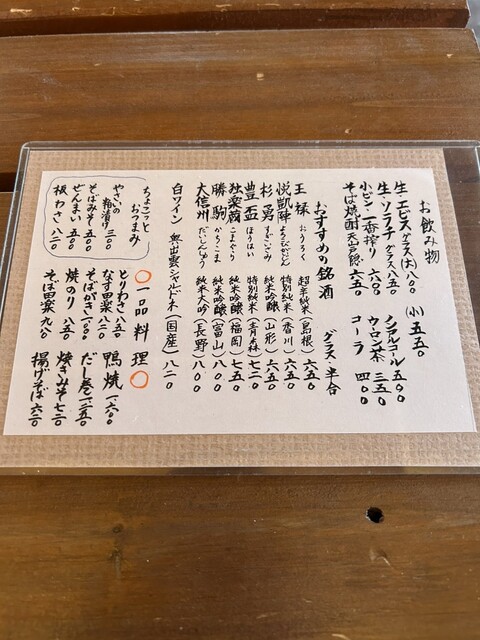 お飲み物
生・エビス グラス(大)八〇〇 (小)五五〇
生・ソラチ グラス 八五〇 ノンアルコール 五〇〇
小ビン・一番搾り 六〇〇 ウーロン茶 三五〇
そば焼酎 天山戸隠 六五〇 コーラ 四〇〇
おすすめの銘酒 グラス 半合
王祿 おうろく 超辛純米(島根)六五〇
悦凱陣 よろこびがいじん 特別純米(香川)六五〇
杉勇 すぎいさみ 純米吟醸(山形)六五〇
豊盃 ほうはい 特別純米(青森)七二〇
独楽蔵 こまぐら 純米吟醸(福岡)七五〇
勝駒 かちこま 純米吟醸(富山)八〇〇
大信州 だいしんしゅう 純米大吟(長野)八〇〇
白ワイン 奥出雲シャルドネ(国産)八二〇
ちょこっと
おつまみ
やさいの粕漬け 三〇〇
そばみそ 五〇〇
ぜんまい 五〇〇
板わさ 八二〇
〇一品料理〇
とりわさ 八五〇 鴨焼 一、六〇〇
なす田楽 八二〇 だし巻 一、二五〇
そばがき 一、〇〇〇 焼きみそ 七二〇
焼のり 八五〇 揚げそば 六二〇
そば田楽 九八〇